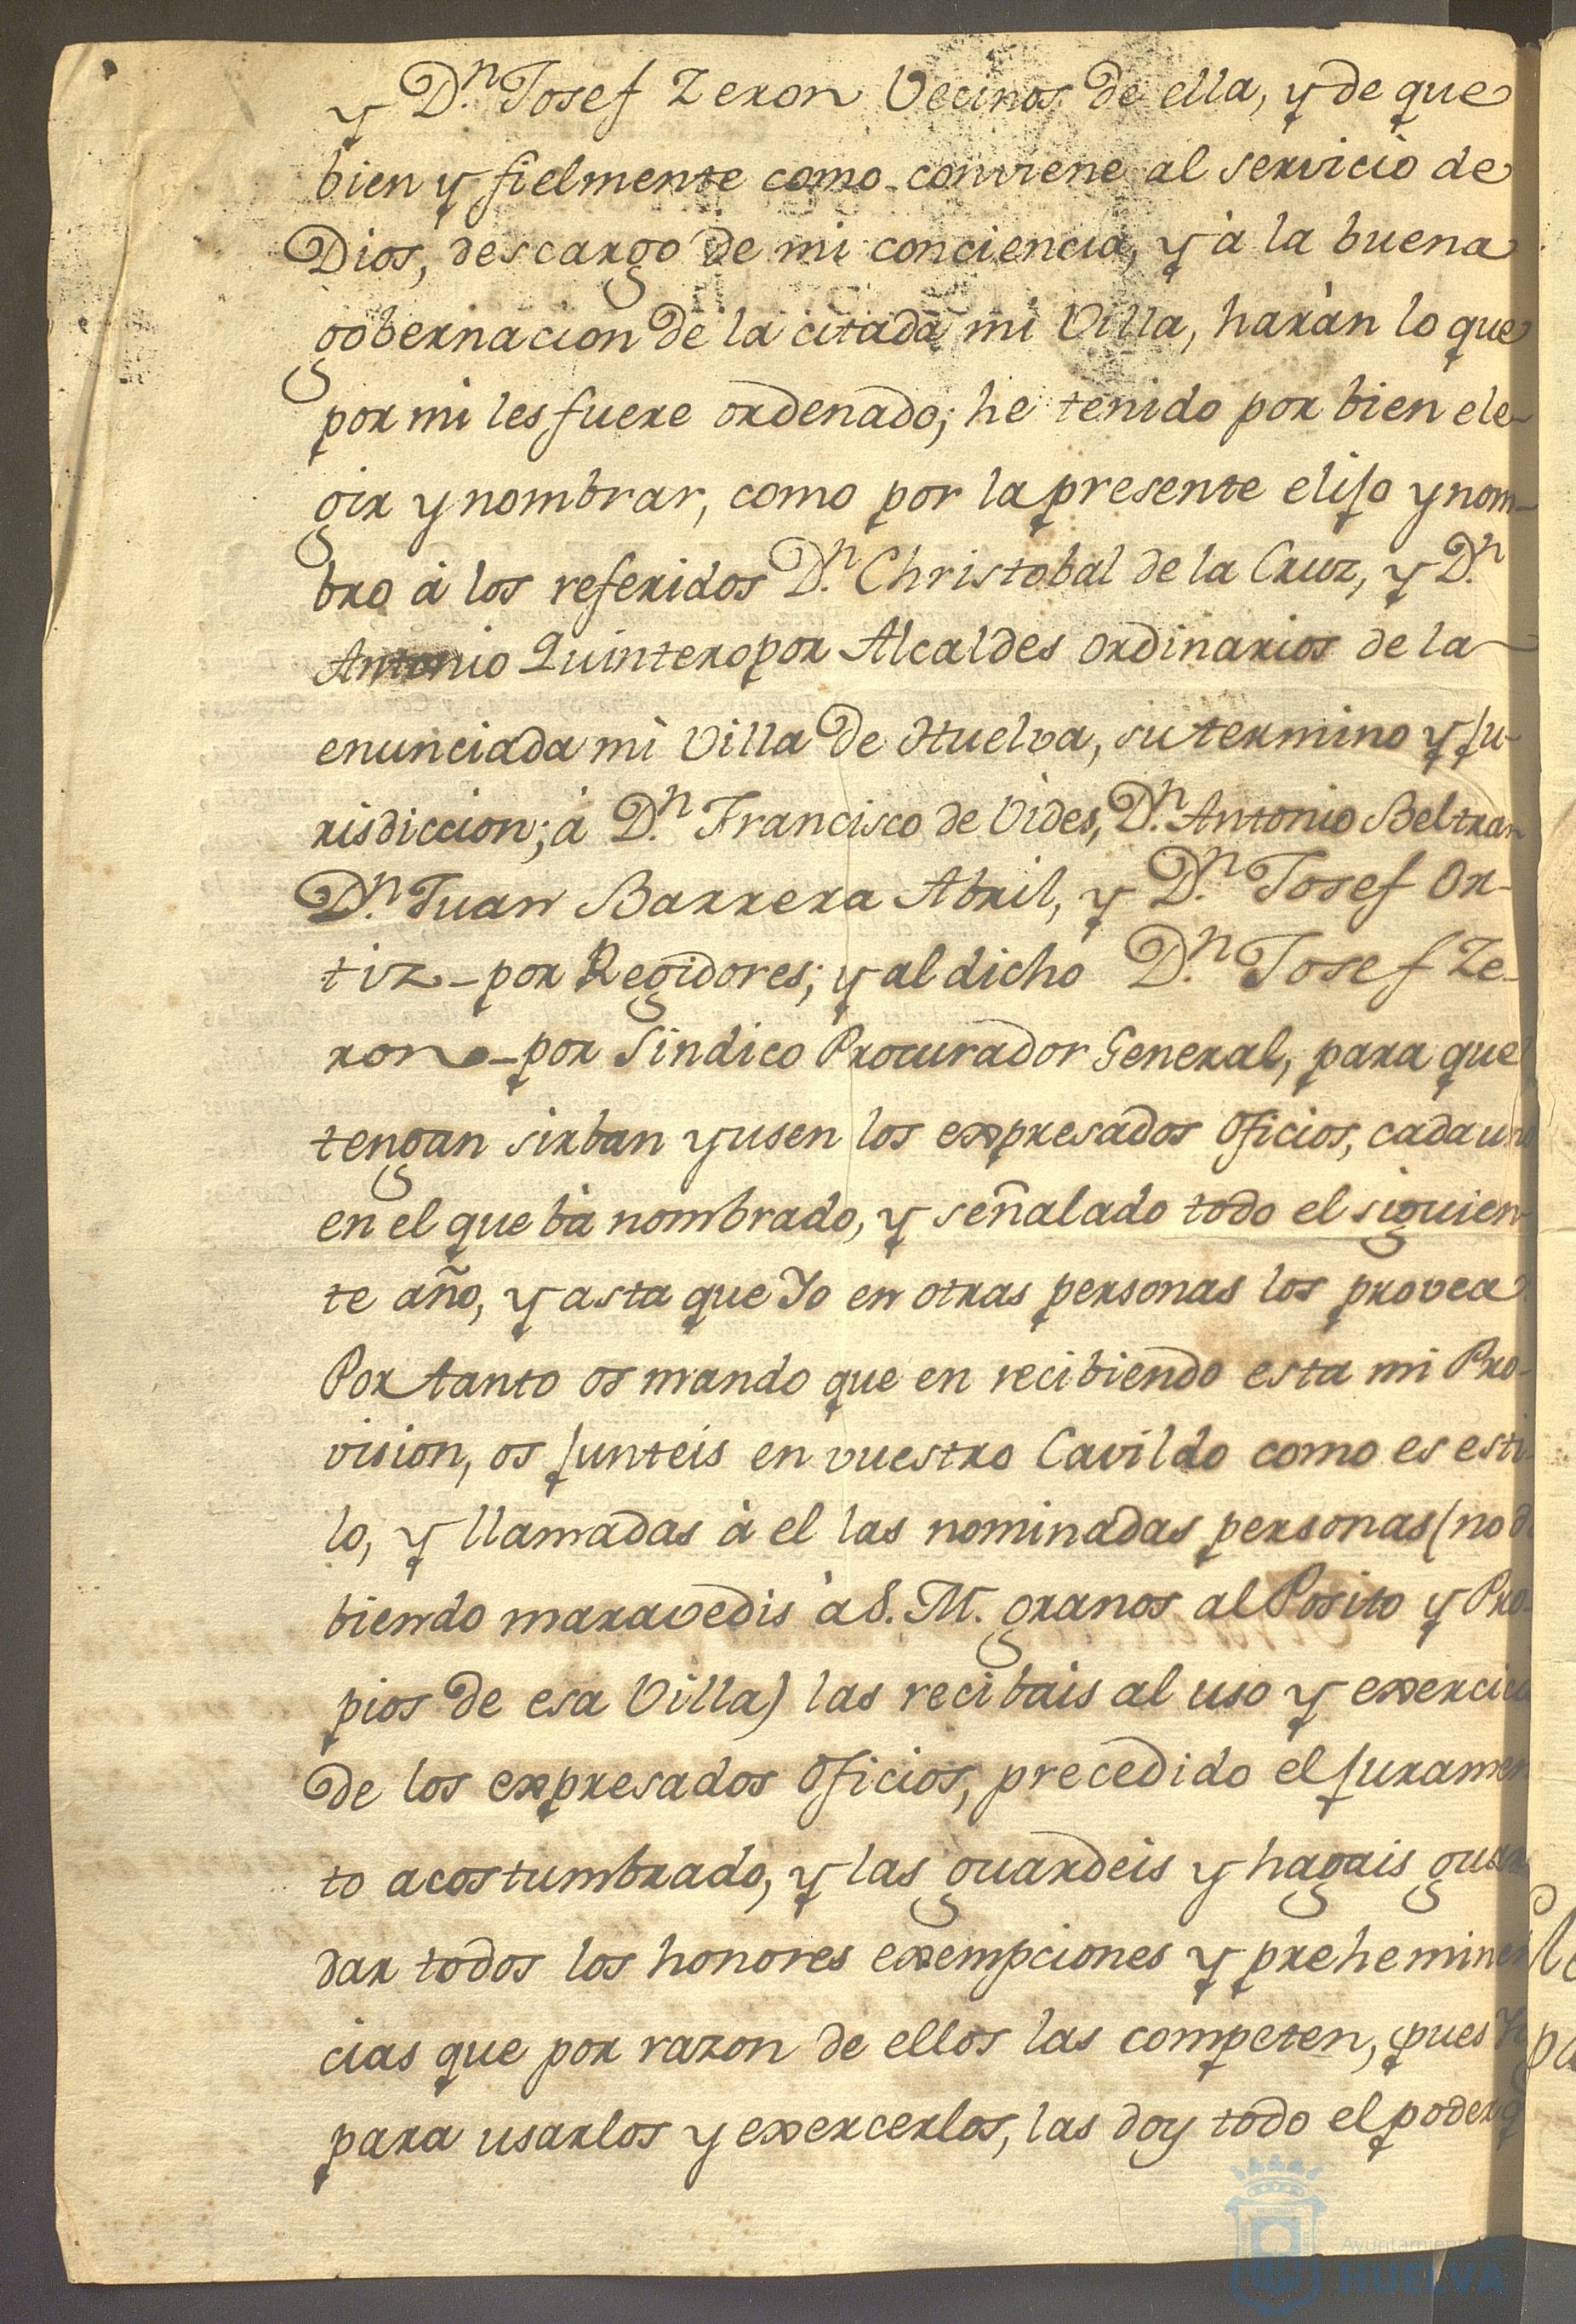 y D.n Josef Zeron Vecinos de ella, y de que
bien y fielmente como conviene al servicio de
Dios, descargo de mi conciencia, y à la buena
gobernacion de la citada mi Villa, haràn lo que
por mi les fuere ordenado; he tenido por bien ele-
gir y nombrar, como por la presente elijo y nom-
bro à los referidos D.n Christobal de la Cruz, y D.n
Antonio Quintero por Alcaldes ordinarios de la
enunciada mi Villa de Huelva, su termino y ju-
risdiccion; à D.n Francisco de Vides, D.n Antonio Beltran
D.n Juan Barrera Abril, y D.n Josef Or-
tiz - por Regidores; y al dicho D.n Josef Ze-
ron - por Sindico Procurador General, para que
tengan sirban y usen los expresados Oficios, cada uno
en el que bà nombrado, y señalado todo el siguien-
te año, y asta que Yo en otras personas los provea.
Por tanto os mando que en recibiendo esta mi Pro-
vision, os junteis en vuestro Cavildo como es esti-
lo, y llamadas à el las nominadas personas (no de
biendo maravedis à S. M. granos al Posito y Pro-
pios de esa Villa) las recibais al uso y exercicio
de los expresados Oficios, precedido el juramen
to acostumbrado, y las guardeis y hagais guar
dar todos los honores exempciones y preheminen
cias que por razon de ellos las competen, pues
para usarlos y exercerlos, las doy todo el poder q
Ayuntamiento de
HUELVA